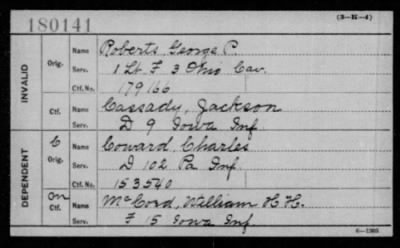 180141
(3-K-4)
INVALID
Orig.
Name Roberts George P.
Serv. 1 Lt. F 3 Ohio Cav.
Ctf. No. 179166
Ctf.
Name Cassady, Jackson
Serv. D 9 Iowa Inf
DEPENDENT
C
Orig.
Name Coward Charles
Serv. D 102 Pa Inf.
Ctf. No. 153540
On
Ctf.
Name McCord, William H. H.
Serv. F 15 Iowa Inf.